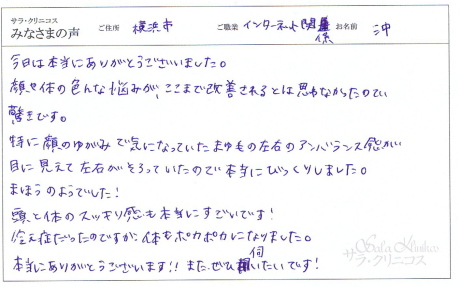 サラ・クリニコス
みなさまの声 ご住所 横浜市 ご職業 インターネット関係 お名前 沖
今日は本当にありがとうございました。
顔や体の色んな悩みが、ここまで改善されるとは思わなかったので
驚きです。
特に顔のゆがみで気になっていたまゆもの左右のアンバランス感が
目に見えて左右がそろっていたので本当にびっくりしました。
まほうのようでした!
頭と体のスッキリ感も本当にすごいです!
冷え症だったのですが、体もポカポカになりました。
本当にありがとうございます!! また、ぜひ伺いたいです!
Sala Klinikos
サラ・クリニコス